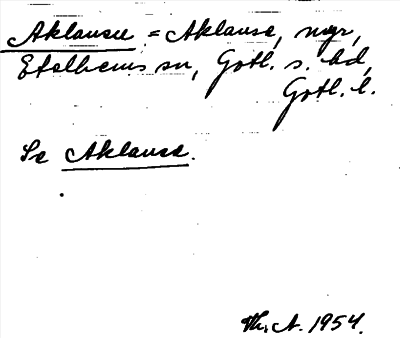 Aklausu = Aklause, myr,
Etelhems sn, Gotl. s. hd,
Gotl. l.
Se Aklause.
Th. A. 1954.